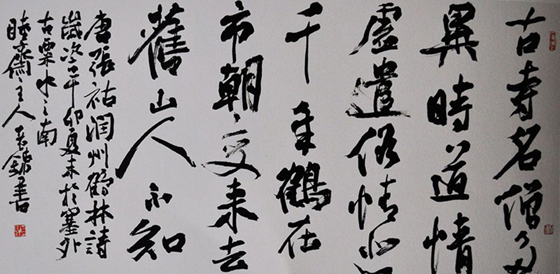 古寺名僧多
異時道情
虛遣俗情悲
千年鶴在
市朝变来去
舊山人不知
唐張祜潤州鶴林詩
歲次辛卯夏末於塞外
古粟水之南
主人書